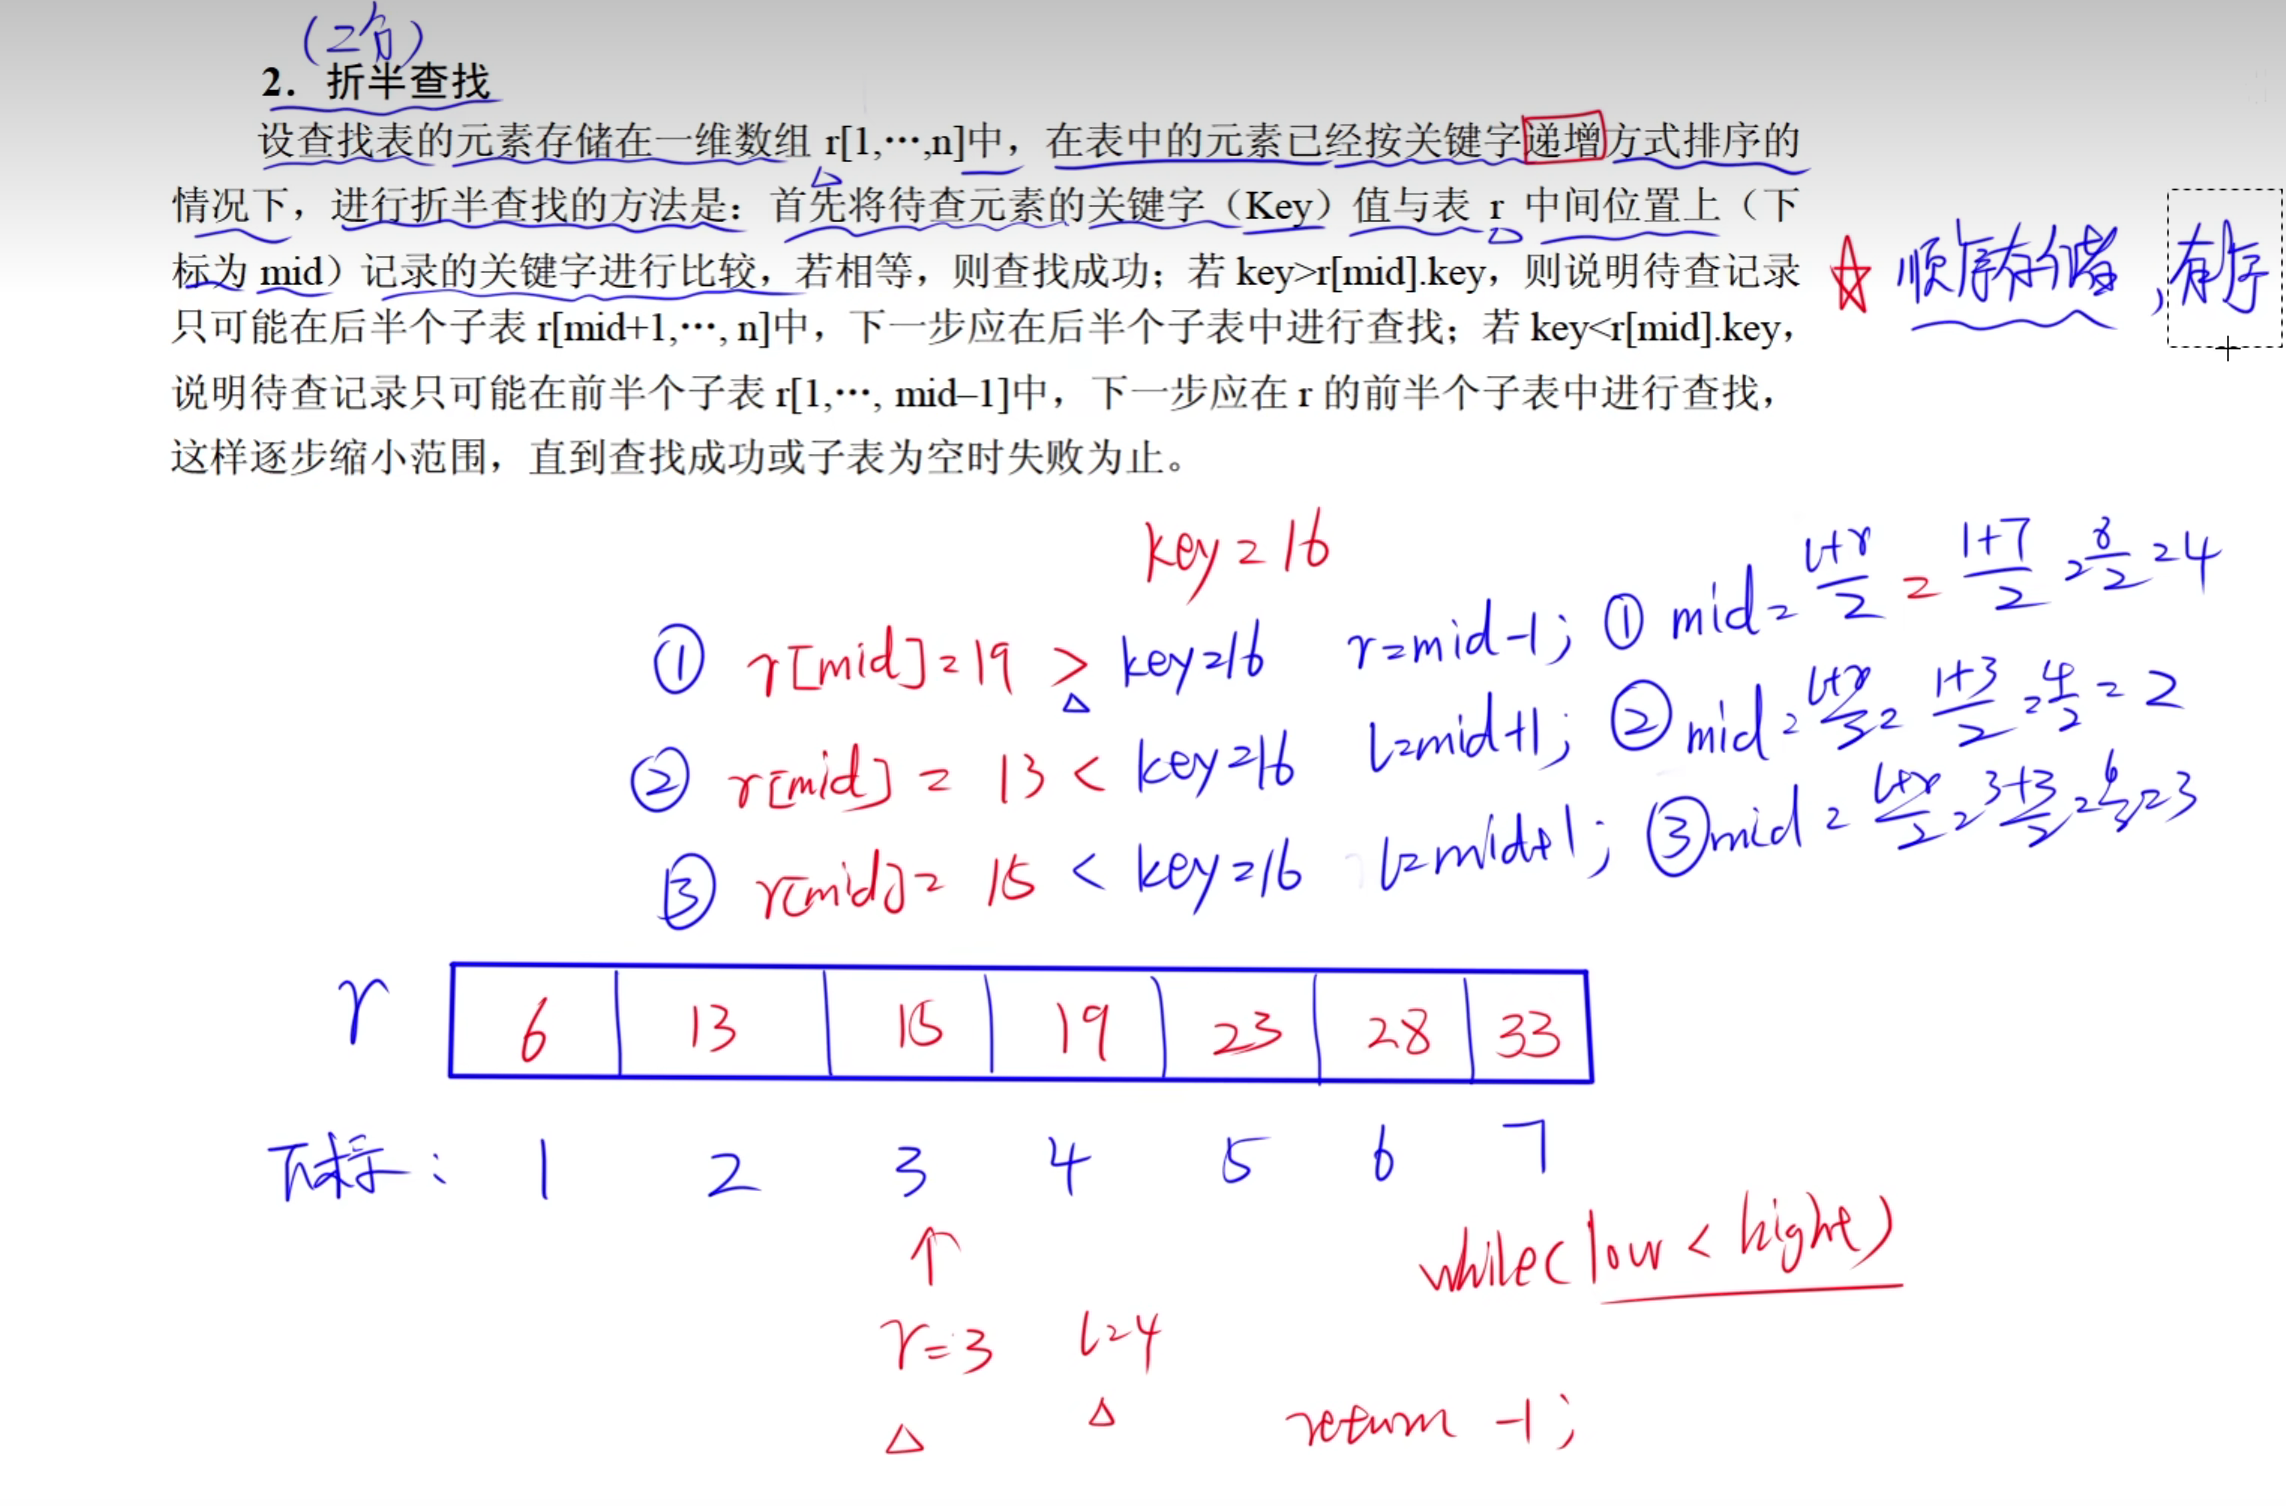 （2分）
2. 折半查找
设查找表的元素存储在一维数组 r[1,…,n]中，在表中的元素已经按关键字递增方式排序的
情况下，进行折半查找的方法是：首先将待查元素的关键字（Key）值与表 r 中间位置上（下
标为 mid）记录的关键字进行比较，若相等，则查找成功；若 key>r[mid].key，则说明待查记录
只可能在后半个子表 r[mid+1,…, n]中，下一步应在后半个子表中进行查找；若 key<r[mid].key，
说明待查记录只可能在前半个子表 r[1,…, mid–1]中，下一步应在 r 的前半个子表中进行查找，
这样逐步缩小范围，直到查找成功或子表为空时失败为止。
顺序存储，有序
key=16
① r[mid]=19 > key=16 r=mid-1; ① mid=l+r/2=1+7/2=8/2=4
② r[mid]=13 < key=16 l=mid+1; ② mid=l+r/2=1+3/2=4/2=2
③ r[mid]=15 < key=16 l=mid+1; ③ mid=l+r/2=3+3/2=6/2=3
r 6 13 15 19 23 28 33
下标: 1 2 3 4 5 6 7
while(low < hight)
r=3 l=4
return -1;